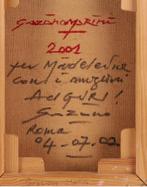 2001
per Madeleine
con i migliori
AUGURI!
Roma
04.07.02